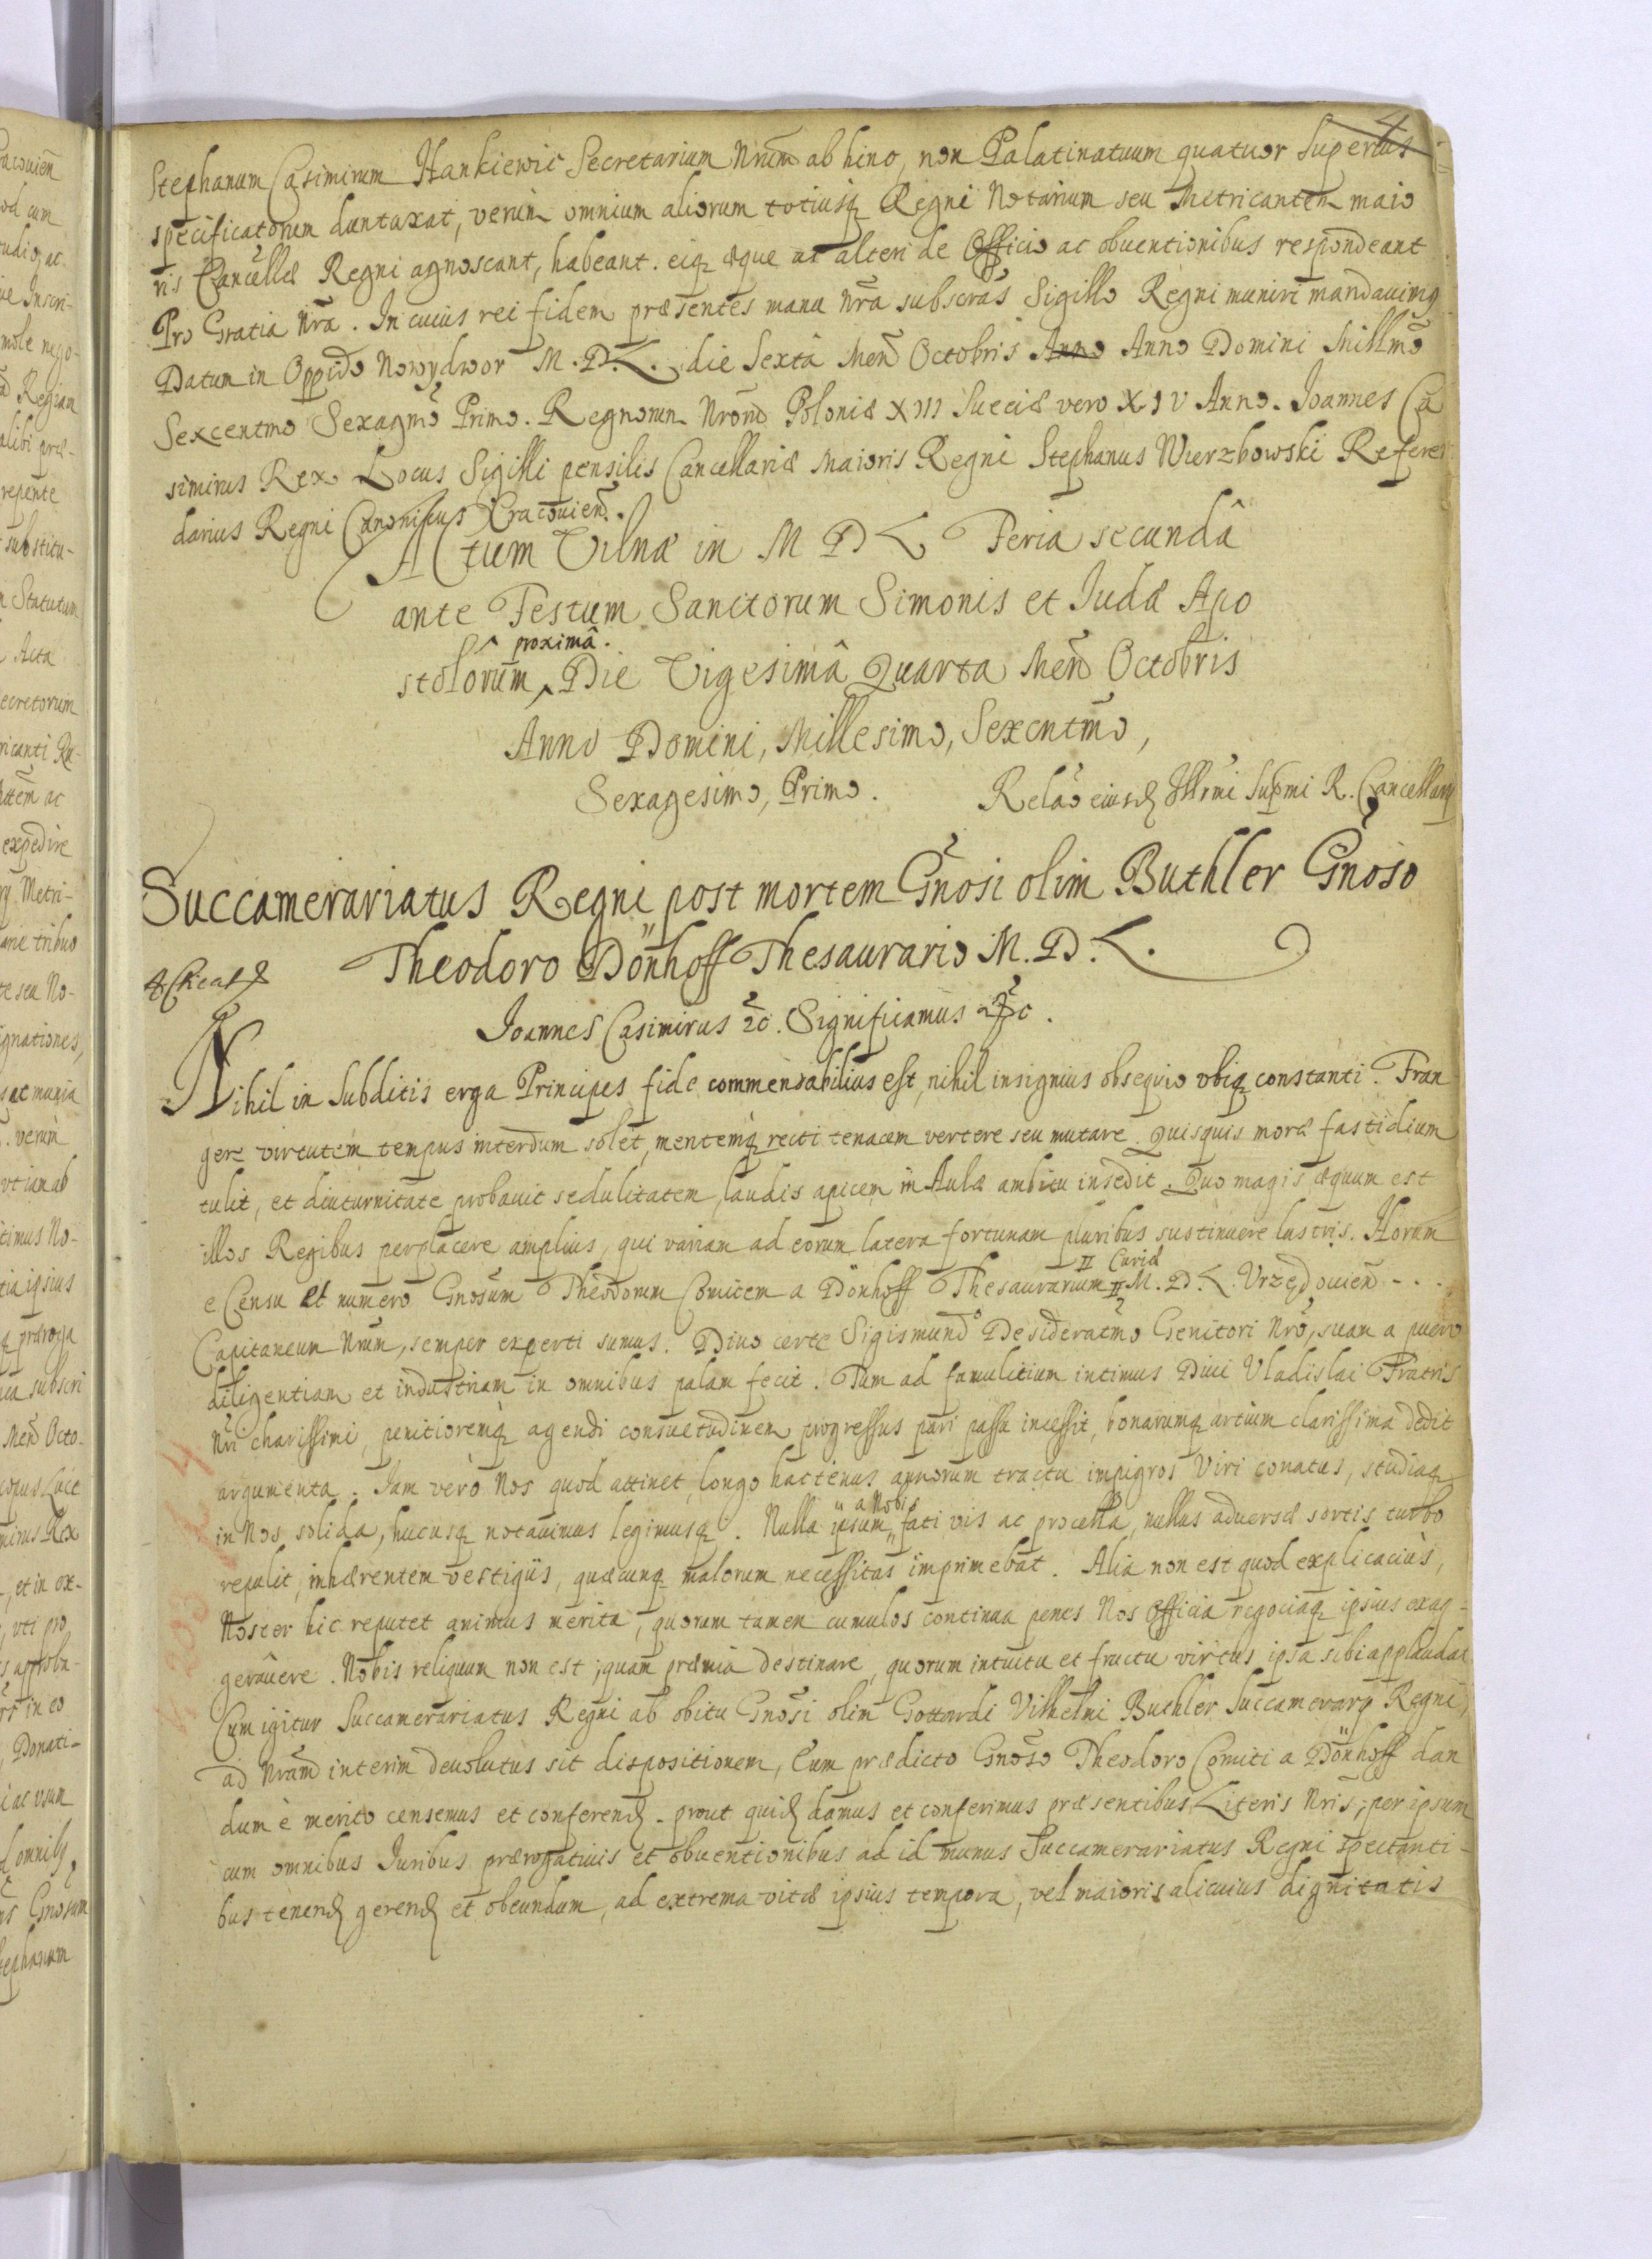 4
Stephanum Casimirum Hankiewic Secretarium Nrum ab hinc, non Palatinatuum quatuor Superius
specificatorum duntaxat, verum omnium aliorum totiusq Regni Notarium seu Metricantem maio
ris Cancellæ Regni agnoscant, habeant. eiq æque ut alteri de Officio ac obuentionibus respondeant
Pro Gratia Nra. In cuius rei fidem præsentes manu Nra subscras Sigillo Regni muniri mandauimq
Datum in Oppido Nowydwor M. D. L. die Sexta Men Octobris Anno Anno Domini Millmo
Sexcentmo Sexagmo Primo. Regnorum Nrorum Poloniæ XIII Sueciæ vero XIV Anno. Joannes Ca
simirus Rex. Locus Sigilli pensilis Cancellariæ Maioris Regni Stephanus Wierzbowski Referen
darius Regni Canonicus Cracouien.
Actum Vilnæ in M D L Feria secundâ
ante Festum Sanctorum Simonis et Iudæ Apo
stolorum ^ proximâ. Die Vigesimâ Quarta Men Octobris
Anno Domini, Millesimo, Sexcntmo,
Sexagesimo, Primo.
Relao eiusd Illrmi Supmi R. Cancellarij
Succamerariatus Regni post mortem Gnosi olim Buthler Gnoso
Theodoro Dönhoff Thesaurario M. D. L.
Joannes Casimirus &c. Significamus &c.
Nihil in Subditis erga Principes fide commendabilius est, nihil insignius obsequio vbiq constanti. Fran
gere virtutem tempus interdum solet, mentemq recti tenacem vertere seu mutare. Quisquis moræ fastidium
tulit, et diuturnitate probauit sedulitatem, laudis apicem in Aulæ ambitu insedit. Quo magis æquum est
illos Regibus perplacere amplius, qui variam ad eorum latera fortunam pluribus sustinuere lustris. Horum
e Censu et numero Gnosum Theodorum Comitem a Dönhoff Thesaurarium Curiæ M. D. L. Vrzędouien - . .
Capitaneum Nrum, semper experti sumus. Diuo certe Sigismundo Desideratmo Genitori Nro, suam a puero
diligentiam et industriam in omnibus palam fecit. Tum ad famulitium intimus Diui Vladislai Fratris
Nri charissimi, penitioremq agendi consuetudinem progressus pari passu incessit, bonarumq artium clarissima dedit
argumenta. Iam vero Nos quod attinet, longo hactenus annorum tractu impigros Viri conatus, studiaq
in Nos solida, hucusq notauimus legimusq. Nulla ipsum a Nobis fati vis ac procella, nullus aduersæ sortis turbo
repulit, inhærentem vestigiis, quæcunq malorum necessitas imprimebat. Alia non est quod explicaciùs,
Noster hic reputet animus merita, quorum tamen cumulos continua penes Nos Officia negociaq ipsius exag-
gerâuere. Nobis reliquum non est; quam præmia destinare, quorum intuitu et fructu virtus ipsa sibi applaudat
Cum igitur Succamerariatus Regni ab obitu Gnosi olim Gottardi Vilhelmi Buthler Succamerarij Regni,
ad Nram interim deuolutus sit dispositionem, Eum prædicto Gnoso Theodoro Comiti a Dönhoff dan
dum è merito censemus et conferend. prout quid damus et conferimus præsentibus Literis Nris; per ipsum
cum omnibus Iuribus prærogatiuis et obuentionibus ad id munus Succamerariatus Regni spectanti-
bus tenend gerend et obeundum, ad extrema vitæ ipsius tempora, vel maioris alicuius dignitatis